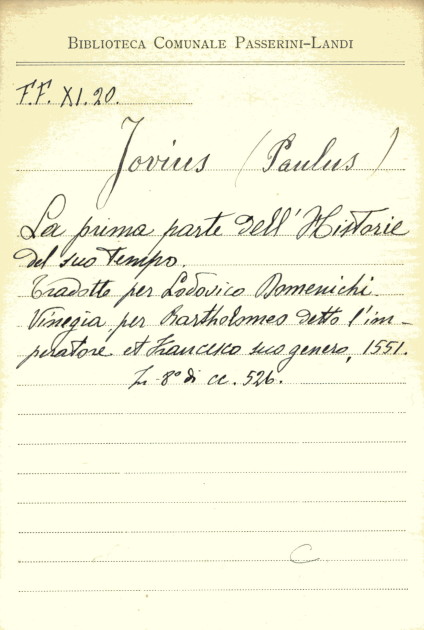 BIBLIOTECA COMUNALE PASSERINI-LANDI
F.F. XI. 20.
Jovius (Paulus)
La prima parte dell'Historie
del suo tempo.
Tradotte per Lodovico Domenichi.
Vinegia, per Bartholomeo detto l'im-
peratore et Francesco suo genero, 1551.
In 8° di cc. 526.
C